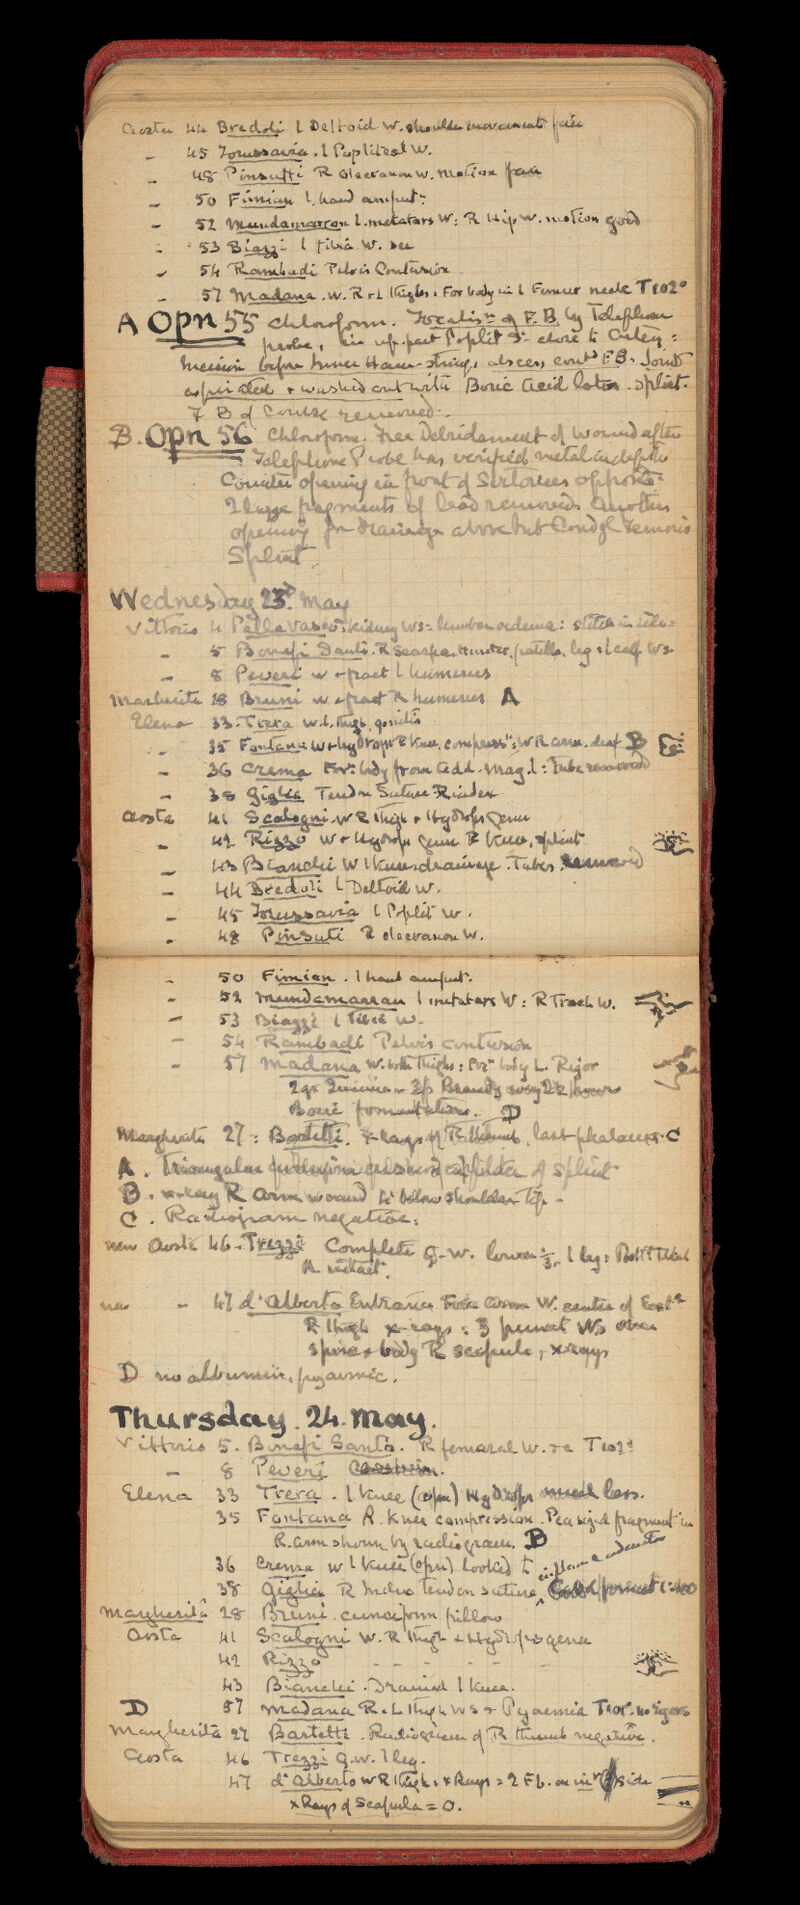 Aosta 44 Bredoli l Deltoid W. shoulder movement fair
- 45 Torussavia. l Popliteal W.
- 48 Pinsutti R Olecranon W. motion fair
- 50 Fimian l. hand amput:
- 52 Mundamarran l. metatars W: R Hip W. motion good
- 53 Biazzi l tibia W. se
- 54 Rambadi Pelvis Contusion
- 57 Madana. W. R + l thighs. For body in l Femur neck T 102°
A Opn 55 Chloroform. Localisn of F.B. by Telephone
probe, in up. part Poplit S. close to Artery:
Incision before Inner Ham-string, abscess, contd FB. Joint
aspirated + washed out with Boric Acid lotn. splint.
F B of Course removed.
B. Opn 56 Chloroform. Free Debridement of Wound after
Telephone Probe has verified metal in depth
Counter opening in front of Sartorius opposite
2 large fragments of lead removed. Another
opening for drainage above Int Condyl femoris
Splint.
Wednesday 23d May
Vittorio 4 Pallavasio. kidney Ws = lumbar oedema: stitch in
- 5 Bonefi Santi. R Scarpa, patella, leg: l calf Ws.
- 8 Peveri w + fract l humerus
Margherita 28 Bruni w + fract R humerus A
Elena 33. Trera w. l. thigh, gonitis
- 35 Fontana W + hydrops R knee, compressn: W R arm. B
- 36 Crema For. body from Add. Mag. l: Tube removed
- 38 Giglia Tendon Suture R index
Aosta 41 Scalogni. w R thigh + Hydrops genu
- 42 Rizzo W + Hydrops genu R knee, splint
- 43 Bianchi W l knee drainage. Tubes removed
- 44 Bredoli l Deltoid W.
- 45 Torussavia l Poplit W.
- 48 Pinsuti R olecranon W.
- 50 Fimian. l hand amput.
- 52 Mundamarran l metatars W: R Troch W.
- 53 Biazzi l Tibia W.
- 54 Rambadi Pelvis contusion
- 57 Madana W. both thighs: Forn body L. Rigor
2 gr Quinine - Brandy every 2 hour
Boric fomentations. D
Margherita 27: Bartetti. X-rays of R thumb, last phalanx. C
A. Triangular of splint
B. X-ray R Arm wound to below shoulder tip -
C. Radiogram negative:
new Aosta 46 - Trezzi Complete G-W. lower ⅓. l leg: Post Tibial
A intact.
new - 47 d'Alberto Entrance W. center of
R thigh X-rays: 3 punct Ws over
spine + body R scapula, X-rays
D no albumin, pyaemic.
Thursday. 24. May.
Vittorio 5. Bonefi Santo. R femoral W. T 102°
- 8 Peveri
Elena 33 Trera. l knee (opn) Hydrops much less.
35 Fontana R. knee compression. Pea sized fragment in
R. arm shown by radiogram. B
36 Crema w l knee (opn) looked to
38 Giglia R Index tendon suture,
Margherita 28 Bruni. cuneiform pillow
Aosta 41 Scalogni W. R Thigh + Hydrops genu
42 Rizzo - - - -
43 Bianchi. Drained l knee.
D 57 Madana R. L thigh Ws + Pyaemia T 101. no rigors
Margherita 27 Bartetti. Radiogram of R thumb negative.
Aosta 46 Trezzi G. W. l leg.
47 d'Alberto W R thigh, X Rays = 2 F b. on side
X Rays of Scapula = 0.